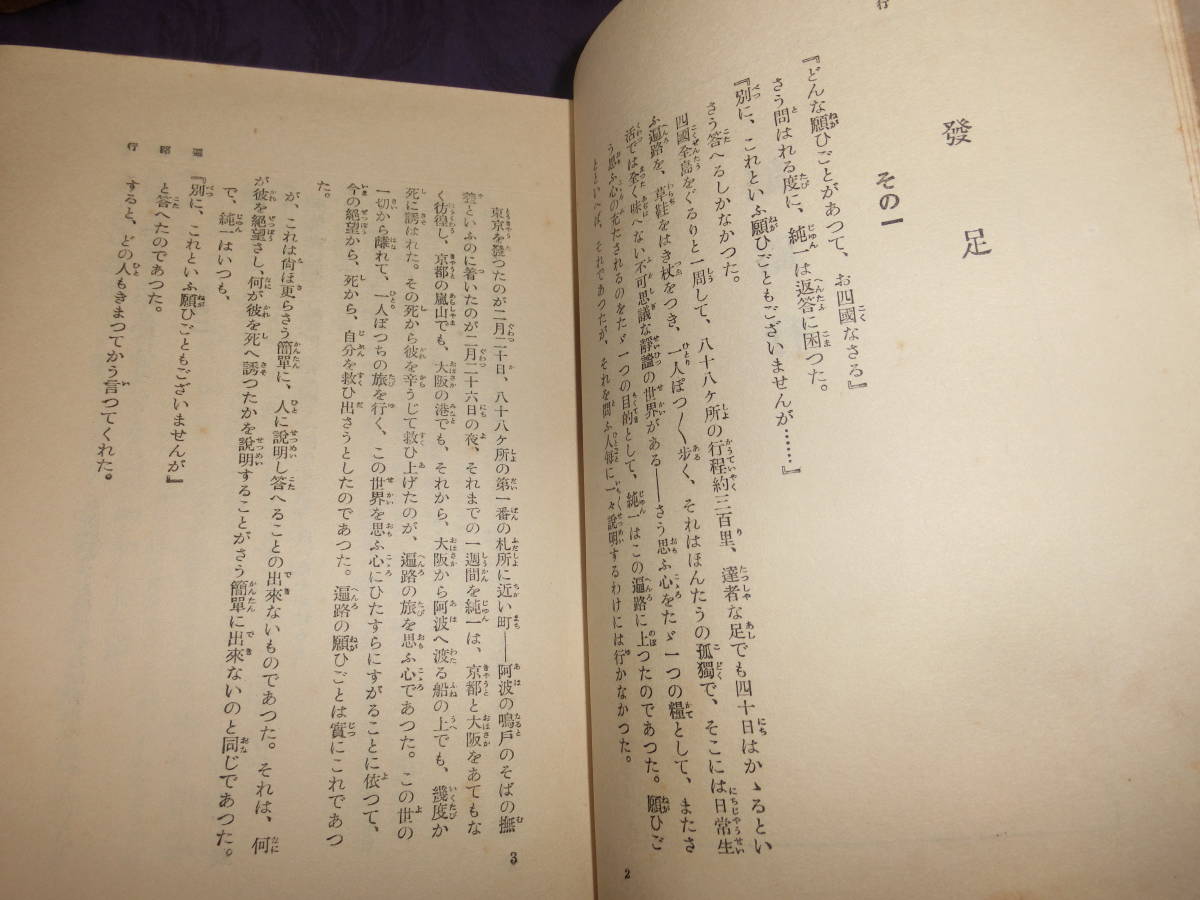 行
發足
その一
『どんな願ひごとがあつて、お四國なさる』
さう問はれる度に、純一は返答に困つた。
『別に、これといふ願ひごともございませんが……』
さう答へるしかなかつた。
四國全島をぐるりと一周して、八十八ヶ所の行程約三百里、達者な足でも四十日はかゝるとい
ふ遍路を、草鞋をはき杖をつき、一人ぽつ〱歩く、それはほんたうの孤獨で、そこには日常生
活では全く味へない不可思議な靜謐の世界がある――さう思ふ心をたゞ一つの糧として、またさ
う思ふ心の充たされるのをたゞ一つの目的として、純一はこの遍路に上つたのであつた。願ひご
とといへば、それであつたが、それを問ふ人毎に一々説明するわけには行かなかつた。
2
東京を發つたのが二月二十日、八十八ヶ所の第一番の札所に近い町――阿波の鳴戸のそばの撫
養といふのに着いたのが二月二十六日の夜、それまでの一週間を純一は、京都と大阪をあてもな
く彷徨し、京都の嵐山でも、大阪の港でも、それから、大阪から阿波へ渡る船の上でも、幾度か
死に誘はれた。その死から彼を辛うじて救ひ上げたのが、遍路の旅を思ふ心であつた。この世の
一切から離れて、一人ぽつちの旅を行く、この世界を思ふ心にひたすらにすがることに依つて、
今の絶望から、死から、自分を救ひ出さうとしたのであつた。遍路の願ひごとは實にこれであつ
た。
が、これは尚ほ更らさう簡單に、人に説明し答へることの出來ないものであつた。それは、何
が彼を絶望さし、何が彼を死へ誘つたかを説明することがさう簡單に出來ないのと同じであつた。
で、純一はいつも、
『別に、これといふ願ひごともございませんが』
と答へたのであつた。
すると、どの人もきまつてかう言つてくれた。
遍路行
3